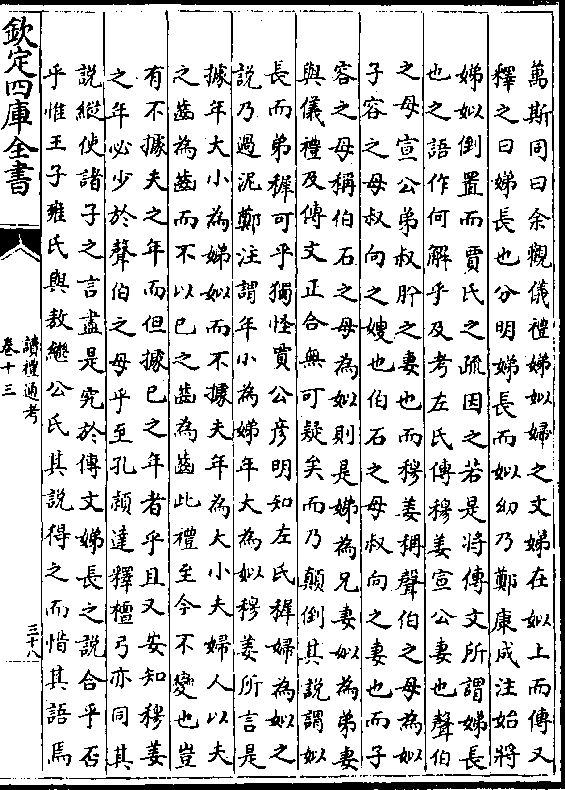 萬斯同曰余觀儀禮娣姒婦之文娣在姒上而傳又
釋之曰娣長也分明娣長而姒幼乃鄭康成注始將
娣姒倒置而賈氏之疏因之若是將傳文所謂娣長
也之語作何解乎及考左氏傳穆姜宣公妻也聲伯
之母宣公弟叔肹之妻也而穆姜稱聲伯之母為姒
子容之母叔向之嫂也伯石之母叔向之妻也而子
容之母稱伯石之母為姒則是娣為兄妻姒為弟妻
與儀禮及傳文正合無可疑矣而乃顛倒其說謂姒
長而弟穉可乎獨怪賈公彦明知左氏穉婦為姒之
說乃過泥鄭注謂年小為娣年大為姒穆姜所言是
據年大小為娣姒而不據夫年為大小夫婦人以夫
之齒為齒而不以已之齒為齒此禮至今不變也豈
有不據夫之年而但據已之年者乎且又安知穆姜
之年必少於聲伯之母乎至孔頴達釋檀弓亦同其
說縱使諸子之言盡是究於傳文娣長之說合乎否
乎惟王子雍氏與敖繼公氏其說得之而惜其語焉
欽定四庫全書
讀禮通考
卷十三
三十八